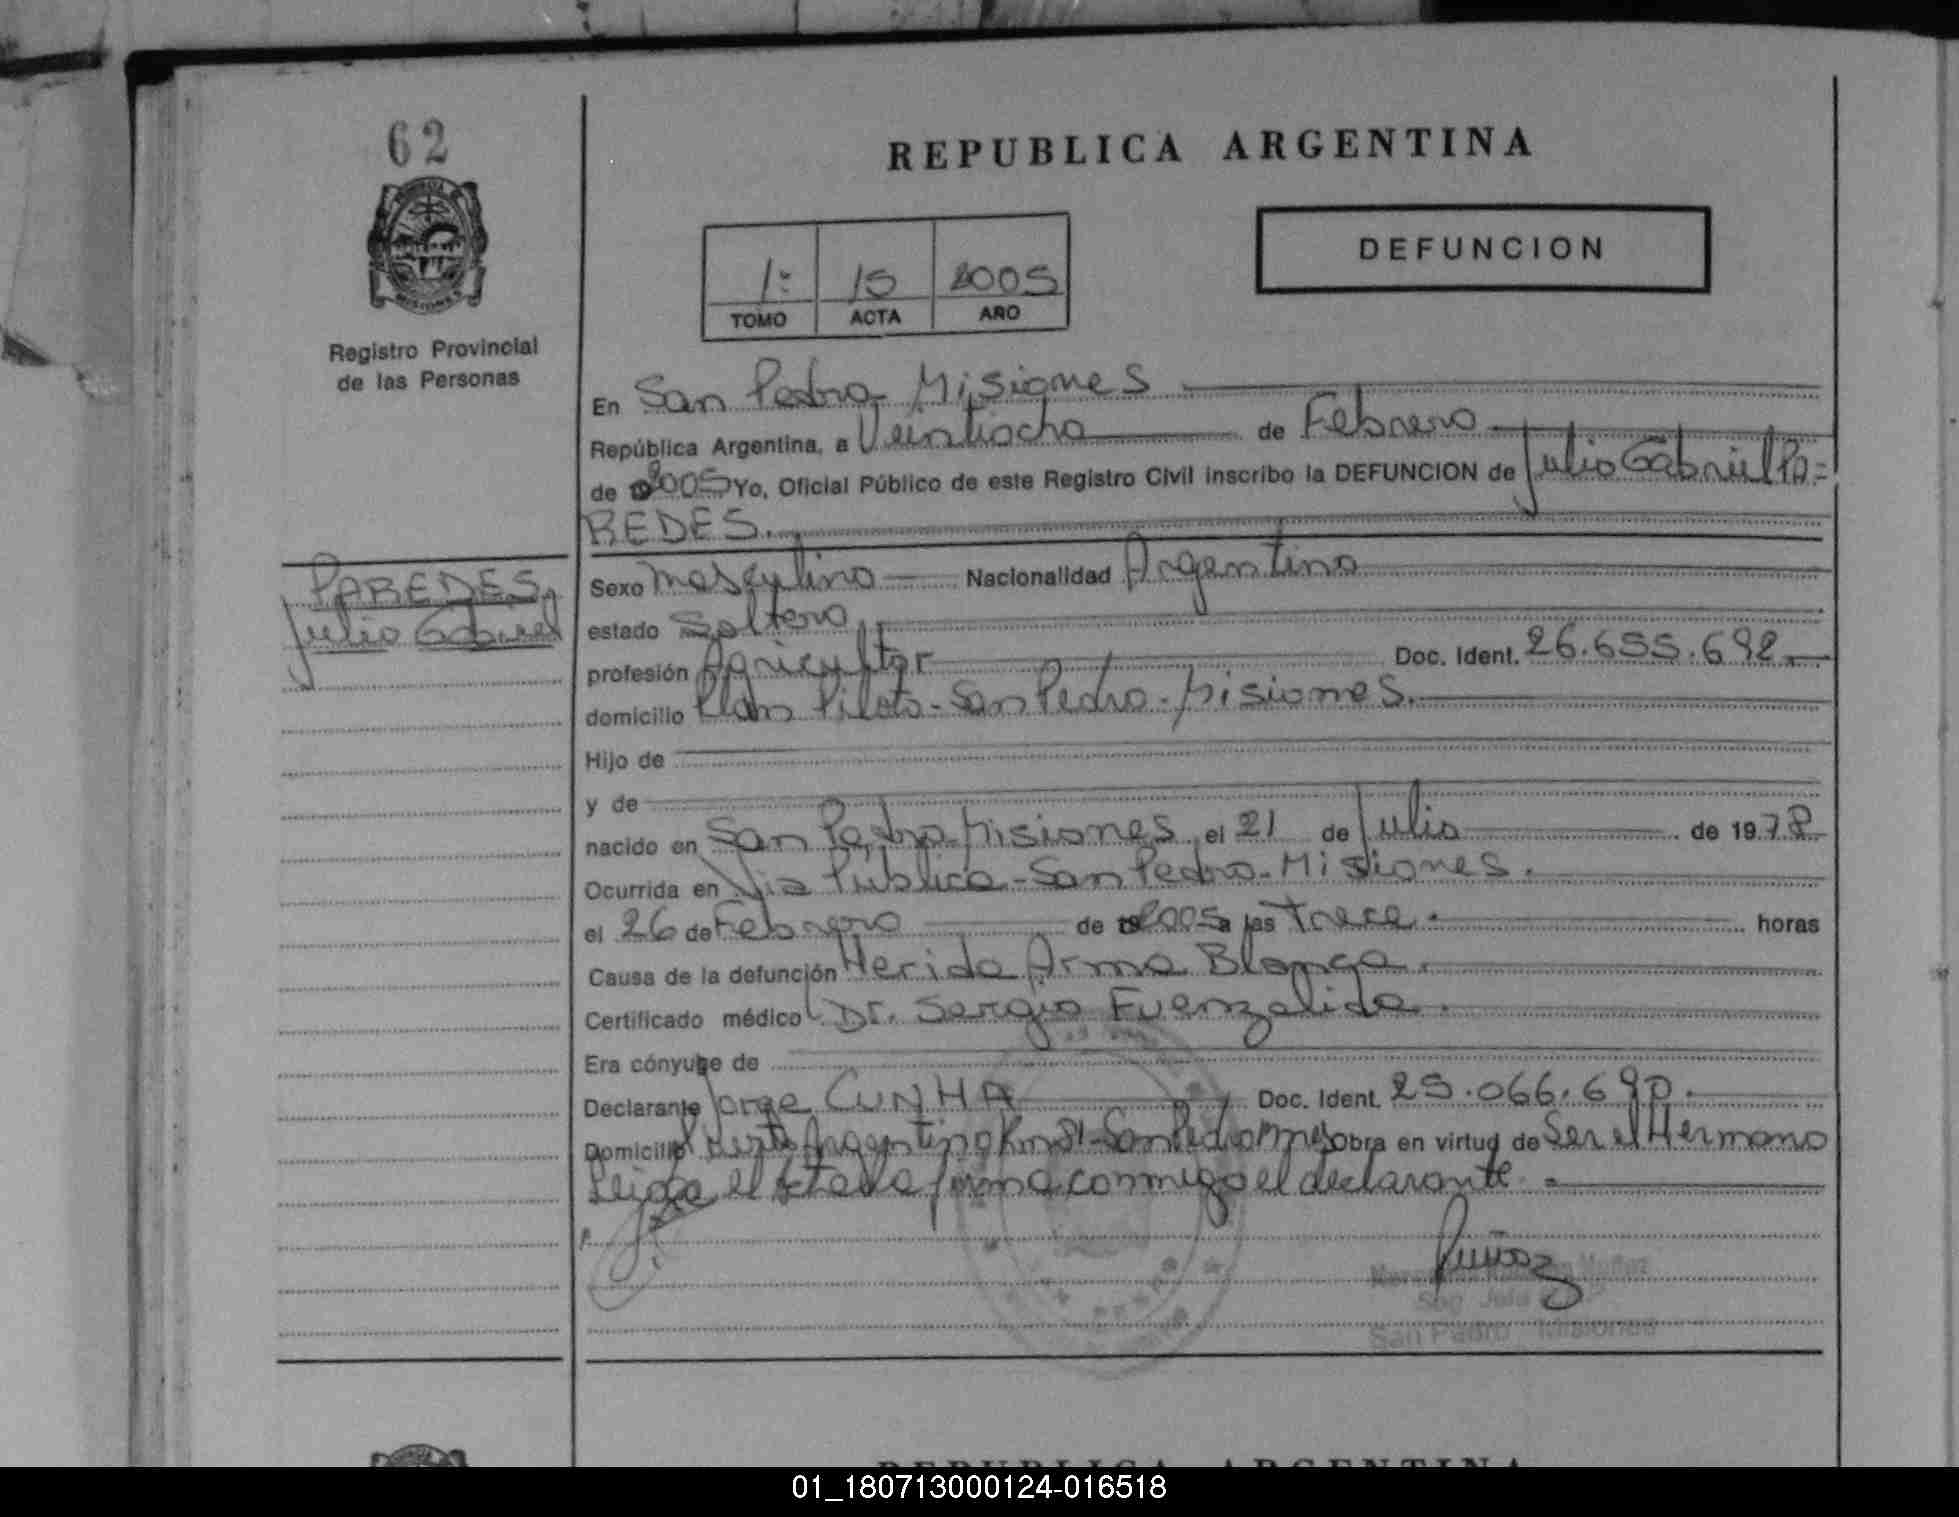 62
REPUBLICA ARGENTINA
DEFUNCION
1: 15 2005
TOMO ACTA AÑO
Registro Provincial
de las Personas
En San Pedro Misiones
República Argentina, a Veintiocho de Febrero
de 2005 Yo, Oficial Público de este Registro Civil inscribo la DEFUNCION de Julio Gabriel PA=
REDES.
PAREDES,
Julio Gabriel
Sexo Masculino Nacionalidad Argentino
estado Soltero
profesión Agricultor Doc. Ident. 26.655.692
domicilio Plan Piloto - San Pedro - Misiones.
Hijo de
y de
nacido en San Pedro Misiones el 21 de Julio de 1978
Ocurrida en Via Publica - San Pedro - Misiones.
el 26 de Febrero de 2005 a las Trece horas
Causa de la defunción Herida Arma Blanca.
Certificado médico Dr. Sergio Fuenzalida.
Era cónyuge de
Declarante Jorge CUNHA Doc. Ident. 25.066.690.
Domicilio Puerto Argentino Km 81 - San Pedro Mnes obra en virtud de Ser el Hermano
Leida el Acta la firma conmigo el declarante.
Muñoz
San Pedro Misiones
REPUBLICA ARGENTINA
01_180713000124-016518